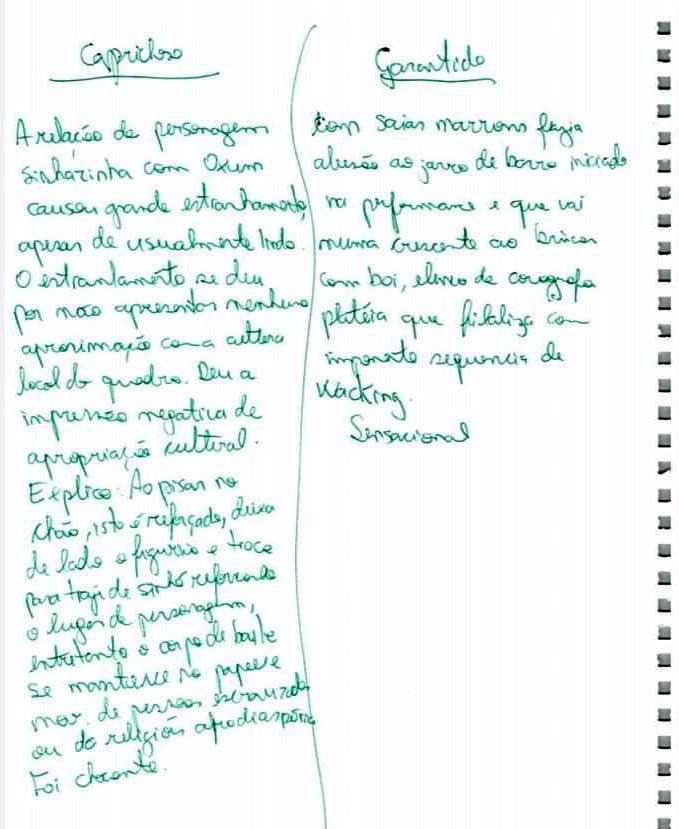 Caprichoso
A relação da personagem
sinhazinha com Oxum
causou grande estranhamento,
apesar de usualmente lindo.
O estranhamento se deu
por não apresentar nenhuma
aproximação com a cultura
local do quadro. Deu a
impressão negativa de
apropriação cultural.
Explico: Ao pisar no
chão, isto é reforçado, deixa
de lado o figurino e troca
para traje de sinhá reforçando
o lugar de personagem,
entretanto o corpo de baile
se manteve no papel
de pessoas escravizadas
ou da religião afrodiaspórica
Foi chocante.
Garantido
com saias marrons fazia
alusão ao jarro de barro iniciado
na performance e que vai
numa crescente ao brincar
com boi, elenco de coreografa
platéia que finaliza com
imponente sequencia de
Wacking.
Sensacional